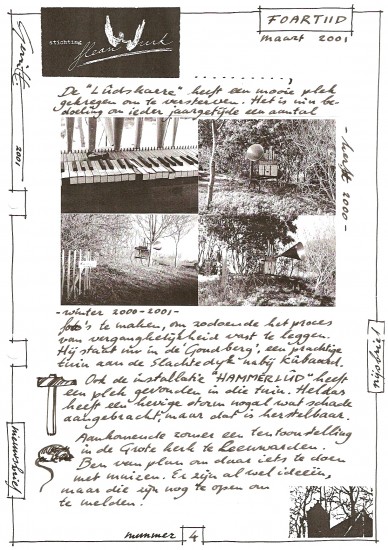 stichting
FOARTIID
maart 2001
2001
De "Lûdskarre" heeft een mooie plek
gekregen om te versterven. Het is mijn be-
doeling om ieder jaargetijde een aantal
- herfst 2000 -
- winter 2000-2001 -
foto's te maken, om zodoende het proces
van vergankelijkheid vast te leggen.
Hij staat nu in de Goudberg', een prachtige
tuin aan de Slachtedyk nabij Kûbaard.
Ook de installatie "HAMMERLÛD" heeft
een plek gevonden in die tuin. Helaas
heeft een hevige storm nogal wat schade
aangebracht maar dat is herstelbaar.
Aankomende zomer een tentoonstelling
in de Grote kerk te Leeuwarden.
Ben van plan om daar iets te doen
met muizen. Er zijn al wel ideeën,
maar die zijn nog te open om
te melden.
nieuwsbrief
nummer 4